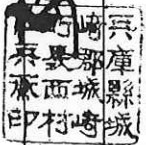 兵庫縣城
崎郡城崎
町 西村
兵衛印